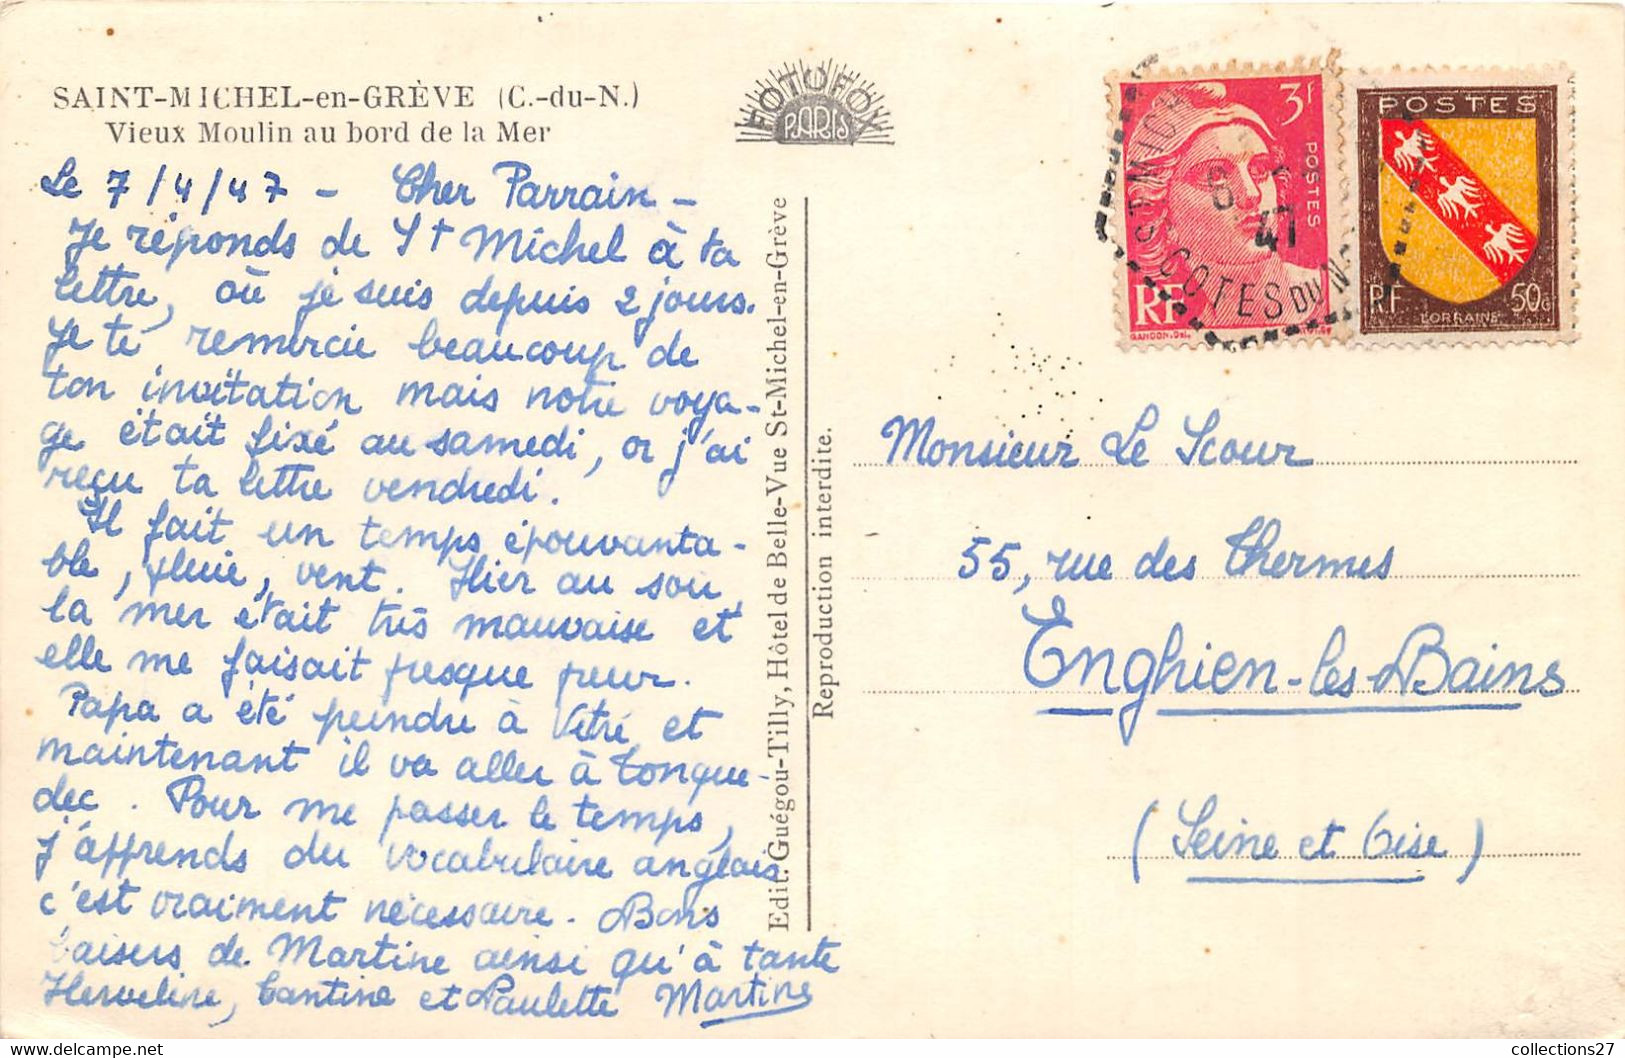 SAINT-MICHEL-en-GRÈVE (C.-du-N.)
Vieux Moulin au bord de la Mer
FOTOFOX
PARIS
Le 7/4/47 - Cher Parrain -
Je réponds de St Michel à ta
lettre, où je suis depuis 2 jours.
Je te remercie beaucoup de
ton invitation mais notre voya-
ge était fixé au samedi, or j'ai
reçu ta lettre vendredi.
Il fait un temps épouvanta-
ble, pluie, vent. Hier au soir
la mer était très mauvaise et
elle me faisait presque peur.
Papa a été peindre à Vitré et
maintenant il va aller à Tonque-
dec. Pour me passer le temps,
j'apprends du vocabulaire anglais
c'est vraiment nécessaire. Bons
baisers de Martine ainsi qu'à tante
Herveline, tantine et Paulette Martine
Edit. Guégou-Tilly, Hôtel de Belle-Vue St-Michel-en-Grève
Reproduction interdite.
3f
POSTES
RF
GANDON.DEL.
ST MICHEL
6
47
COTES DU N
POSTES
RF
50c
LORRAINE
Monsieur Le Scour
55, rue des Thermes
Enghien-les-Bains
(Seine et Oise)
collections27